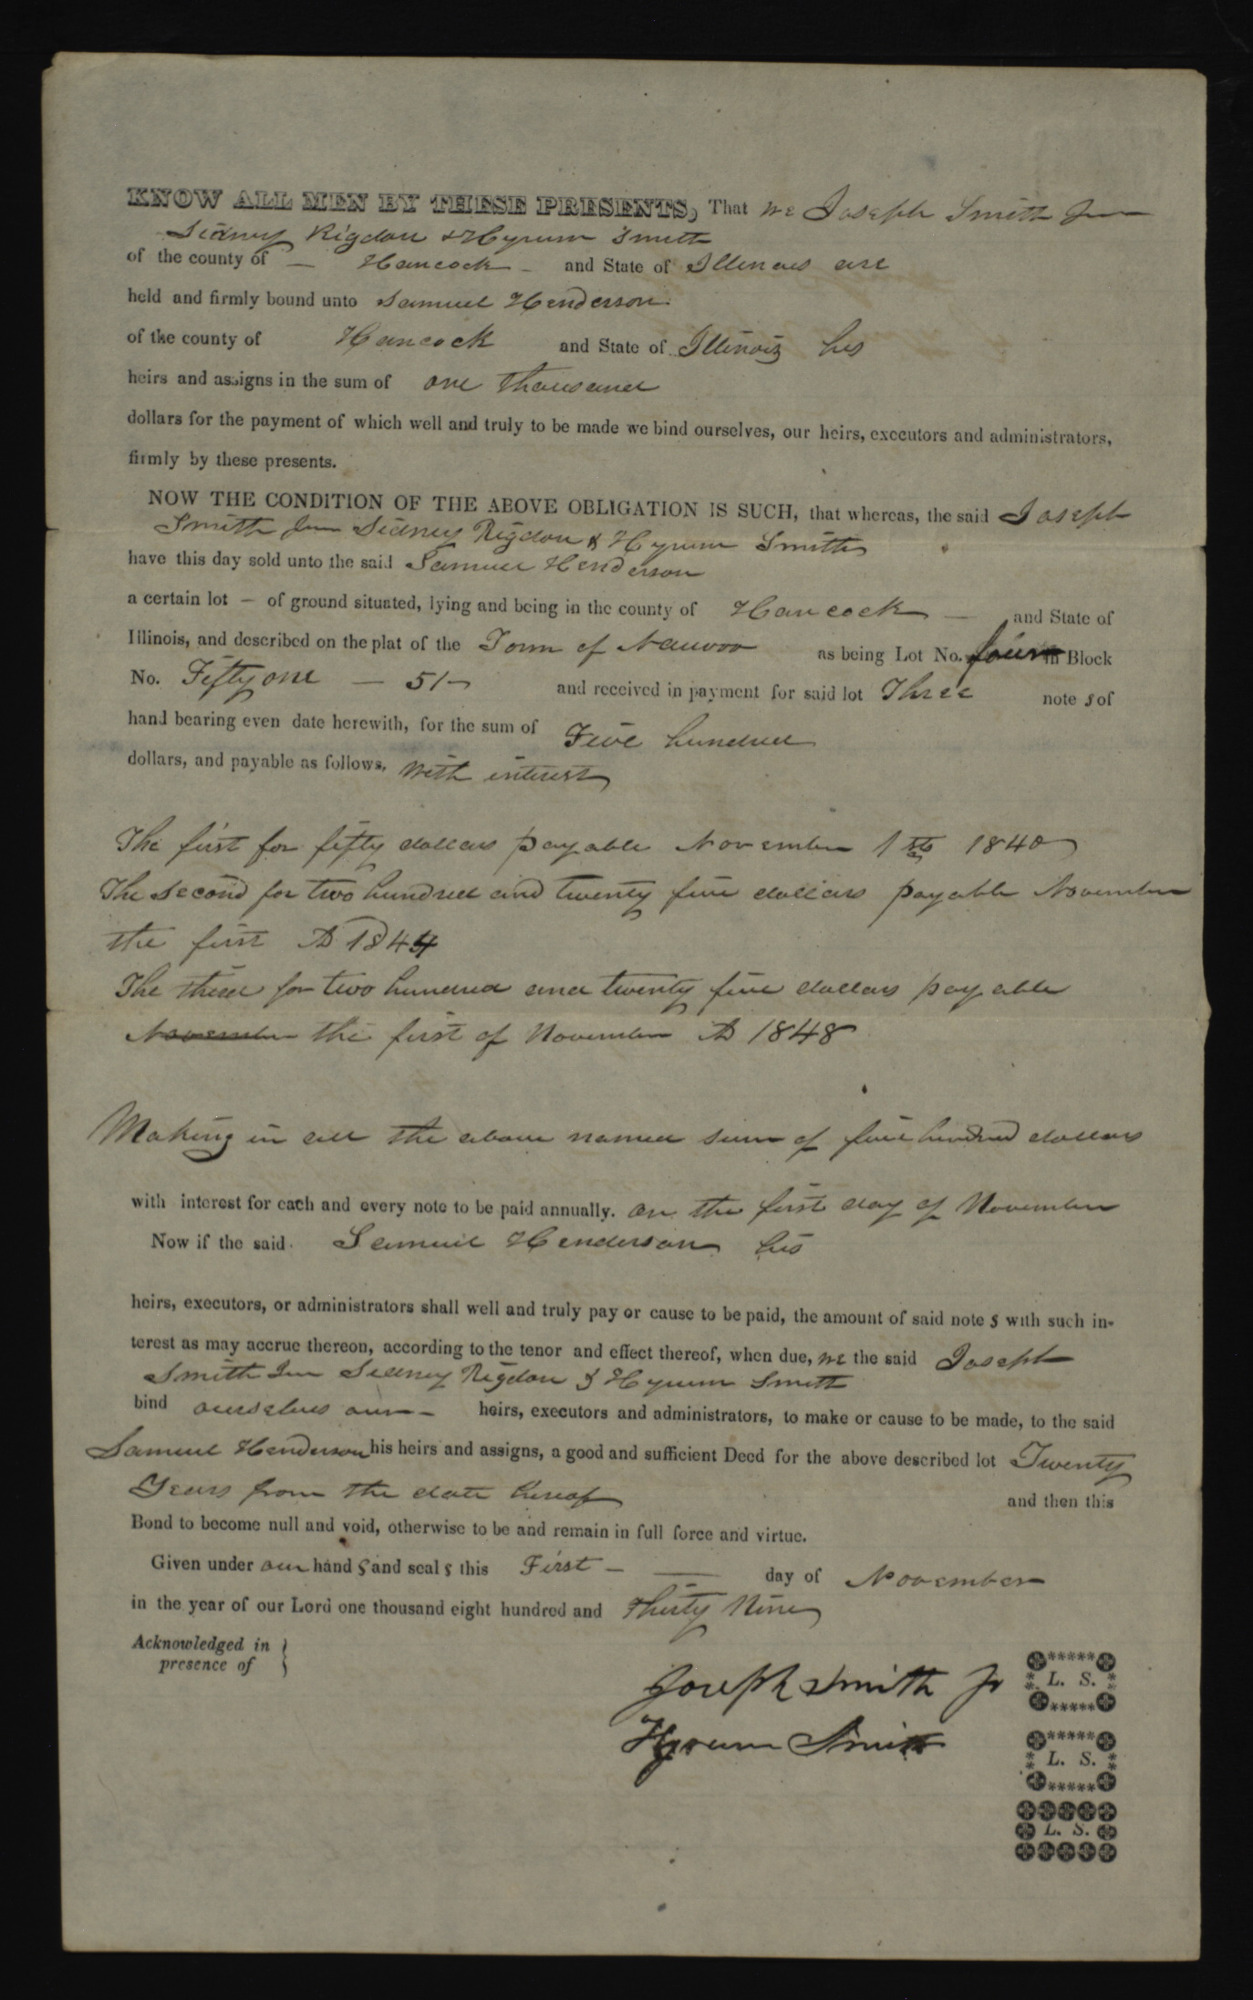 KNOW ALL MEN BY THESE PRESENTS, That we Joseph Smith Jun
Sidney Rigdon & Hyrum Smith
of the county of — Hancock — and State of Illinois are
held and firmly bound unto Samuel Henderson
of the county of Hancock and State of Illinois his
heirs and assigns in the sum of one thousand
dollars for the payment of which well and truly to be made we bind ourselves, our heirs, executors and administrators,
firmly by these presents.
NOW THE CONDITION OF THE ABOVE OBLIGATION IS SUCH, that whereas, the said Joseph
Smith Jun Sidney Rigdon & Hyrum Smith
have this day sold unto the said Samuel Henderson
a certain lot — of ground situated, lying and being in the county of Hancock — and State of
Illinois, and described on the plat of the Town of Nauvoo as being Lot No. four in Block
No. Fifty one — 51 — and received in payment for said lot Three note s of
hand bearing even date herewith, for the sum of Five hundred
dollars, and payable as follows, with interest
The first for fifty dollars payable November 1st 1840
The second for two hundred and twenty five dollars payable November
the first AD 1844
The third for two hundred and twenty five dollars payable
November the first of November AD 1848
Making in all the above named sum of five hundred dollars
with interest for each and every note to be paid annually. on the first day of November
Now if the said Samuel Henderson his
heirs, executors, or administrators shall well and truly pay or cause to be paid, the amount of said note s with such in-
terest as may accrue thereon, according to the tenor and effect thereof, when due, we the said Joseph
Smith Jun Sidney Rigdon & Hyrum Smith
bind ourselves our — heirs, executors and administrators, to make or cause to be made, to the said
Samuel Henderson his heirs and assigns, a good and sufficient Deed for the above described lot Twenty
Years from the date hereof and then this
Bond to become null and void, otherwise to be and remain in full force and virtue.
Given under our hand s and seal s this First — — day of November
in the year of our Lord one thousand eight hundred and Thirty Nine
Acknowledged in
presence of }
Joseph Smith Jr L. S.
Hyrum Smith L. S.
L. S.